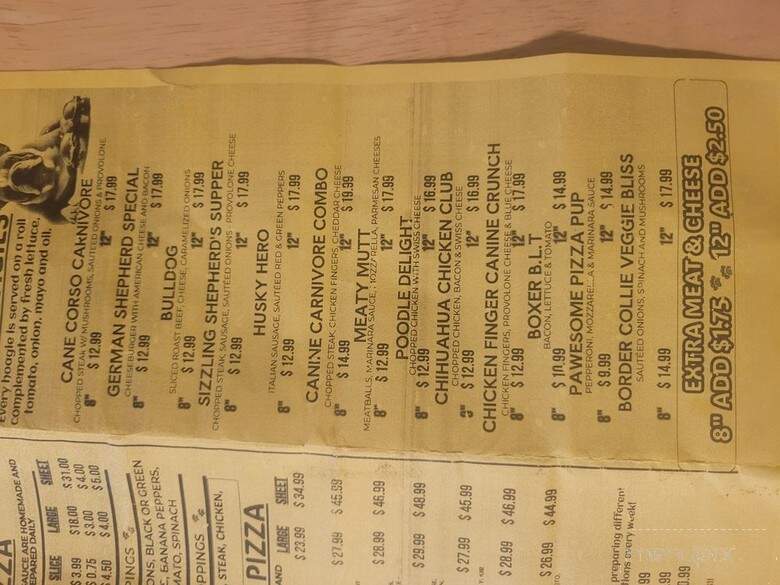 every hoagie is served on a roll
complemented by fresh lettuce,
tomato, onion, mayo and oil.
CANE CORSO CARNIVORE
CHOPPED STEAK W/ MUSHROOMS, SAUTEED ONIONS & PROVOLONE
8" $ 12.99 12" $ 17.99
GERMAN SHEPHERD SPECIAL
CHEESEBURGER WITH AMERICAN CHEESE AND BACON
8" $ 12.99 12" $ 17.99
BULLDOG
SLICED ROAST BEEF, CHEESE, CARAMELIZED ONIONS
8" $ 12.99 12" $ 17.99
SIZZLING SHEPHERD'S SUPPER
CHOPPED STEAK, SAUSAGE, SAUTÉED ONIONS PROVOLONE CHEESE
8" $ 12.99 12" $ 17.99
HUSKY HERO
ITALIAN SAUSAGE, SAUTEED RED & GREEN PEPPERS
8" $ 12.99 12" $ 17.99
CANINE CARNIVORE COMBO
CHOPPED STEAK, CHICKEN FINGERS, CHEDDAR CHEESE
8" $ 14.99 12" $ 19.99
MEATY MUTT
MEATBALLS, MARINARA SAUCE, MOZZARELLA, PARMESAN CHEESES
8" $ 12.99 12" $ 17.99
POODLE DELIGHT
CHOPPED CHICKEN WITH SWISS CHEESE
8" $ 12.99 12" $ 16.99
CHIHUAHUA CHICKEN CLUB
CHOPPED CHICKEN, BACON & SWISS CHEESE
8" $ 12.99 12" $ 16.99
CHICKEN FINGER CANINE CRUNCH
CHICKEN FINGERS, PROVOLONE CHEESE & BLUE CHEESE
8" $ 12.99 12" $ 17.99
BOXER B.L.T
BACON, LETTUCE & TOMATO
8" $ 10.99 12" $ 14.99
PAWESOME PIZZA PUP
PEPPERONI, MOZZARELLA & MARINARA SAUCE
8" $ 9.99 12" $ 14.99
BORDER COLLIE VEGGIE BLISS
SAUTÉED ONIONS, SPINACH AND MUSHROOMS
8" $ 14.99 12" $ 17.99
EXTRA MEAT & CHEESE
8" ADD $1.75 12" ADD $2.50
SAUCE ARE HOMEMADE AND
PREPARED DAILY
SLICE LARGE SHEET
$ 3.99 $18.00 $ 31.00
$ 0.75 $ 3.00 $ 4.00
$ 4.50 $ 4.00 $ 5.00
PINGS
ONS, BLACK OR GREEN
BANANA PEPPERS,
MATO, SPINACH
PPINGS
STEAK, CHICKEN,
PIZZA
AND LARGE SHEET
$ 23.99 $ 34.99
$ 27.99 $ 45.99
$ 28.99 $ 46.99
$ 29.99 $ 48.99
$ 27.99 $ 45.99
$ 28.99 $ 46.99
$ 26.99 $ 44.99
preparing different
ions every week!